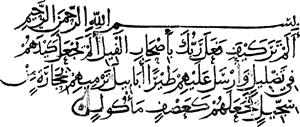 بسم الله الرحمن الرحيم
الم تر كيف فعل ربك بأصحاب الفيل ألم يجعل كيدهم
في تضليل وأرسل عليهم طيرا أبابيل ترميهم بحجارة من
سجيل فجعلهم كعصف مأكول